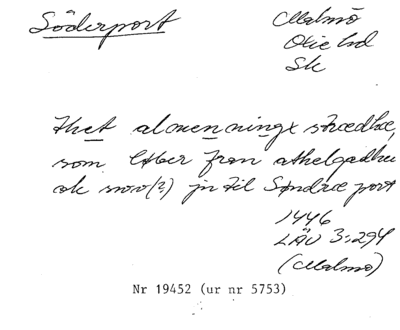 Söderport
Malmö
Oxie hd
Sk
thet almenninge strædhe,
som løber fran athelgadhu
ok nor(?) in til Søndræ port
1446
LÄU 3:294
(Malmö)
Nr 19452 (ur nr 5753)